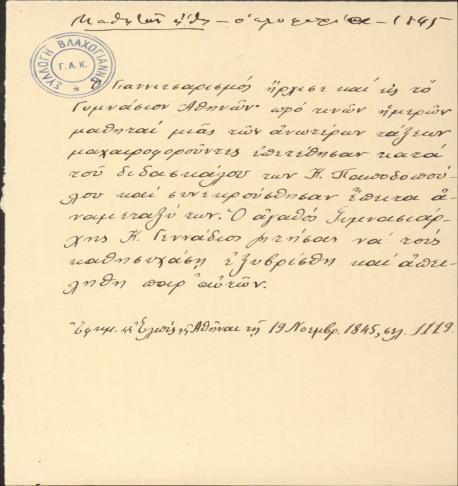 Μαθητῶν ἤθη – – 1845
ΣΥΛΛΟΓΗ ΒΛΑΧΟΓΙΑΝΝΗ
Γ.Α.Κ.
Γιαννιτσαρισμός ἤρχισε καί εἰς τό
Γυμνάσιον Ἀθηνῶν· πρό τινῶν ἡμερῶν
μαθηταί μιᾶς τῶν ἀνωτέρων τάξεων
μαχαιροφοροῦντες ἐπετέθησαν κατά
τοῦ διδασκάλου των Κ. Παπαδοπού-
λου καί συνεκρούσθησαν ἔπειτα ἀ-
ναμεταξύ των. Ὁ ἀγαθός Γυμνασιάρ-
χης Κ. Γεννάδιος ζητήσας νά τούς
καθησυχάσῃ ἐξυβρίσθη καί ἀπει-
λήθη παρ' αὐτῶν.
Ἐφημ. ἡ Ἐλπίς Ἀθῆναι τῇ 19 Νοεμβρ. 1845, σελ. 1119.